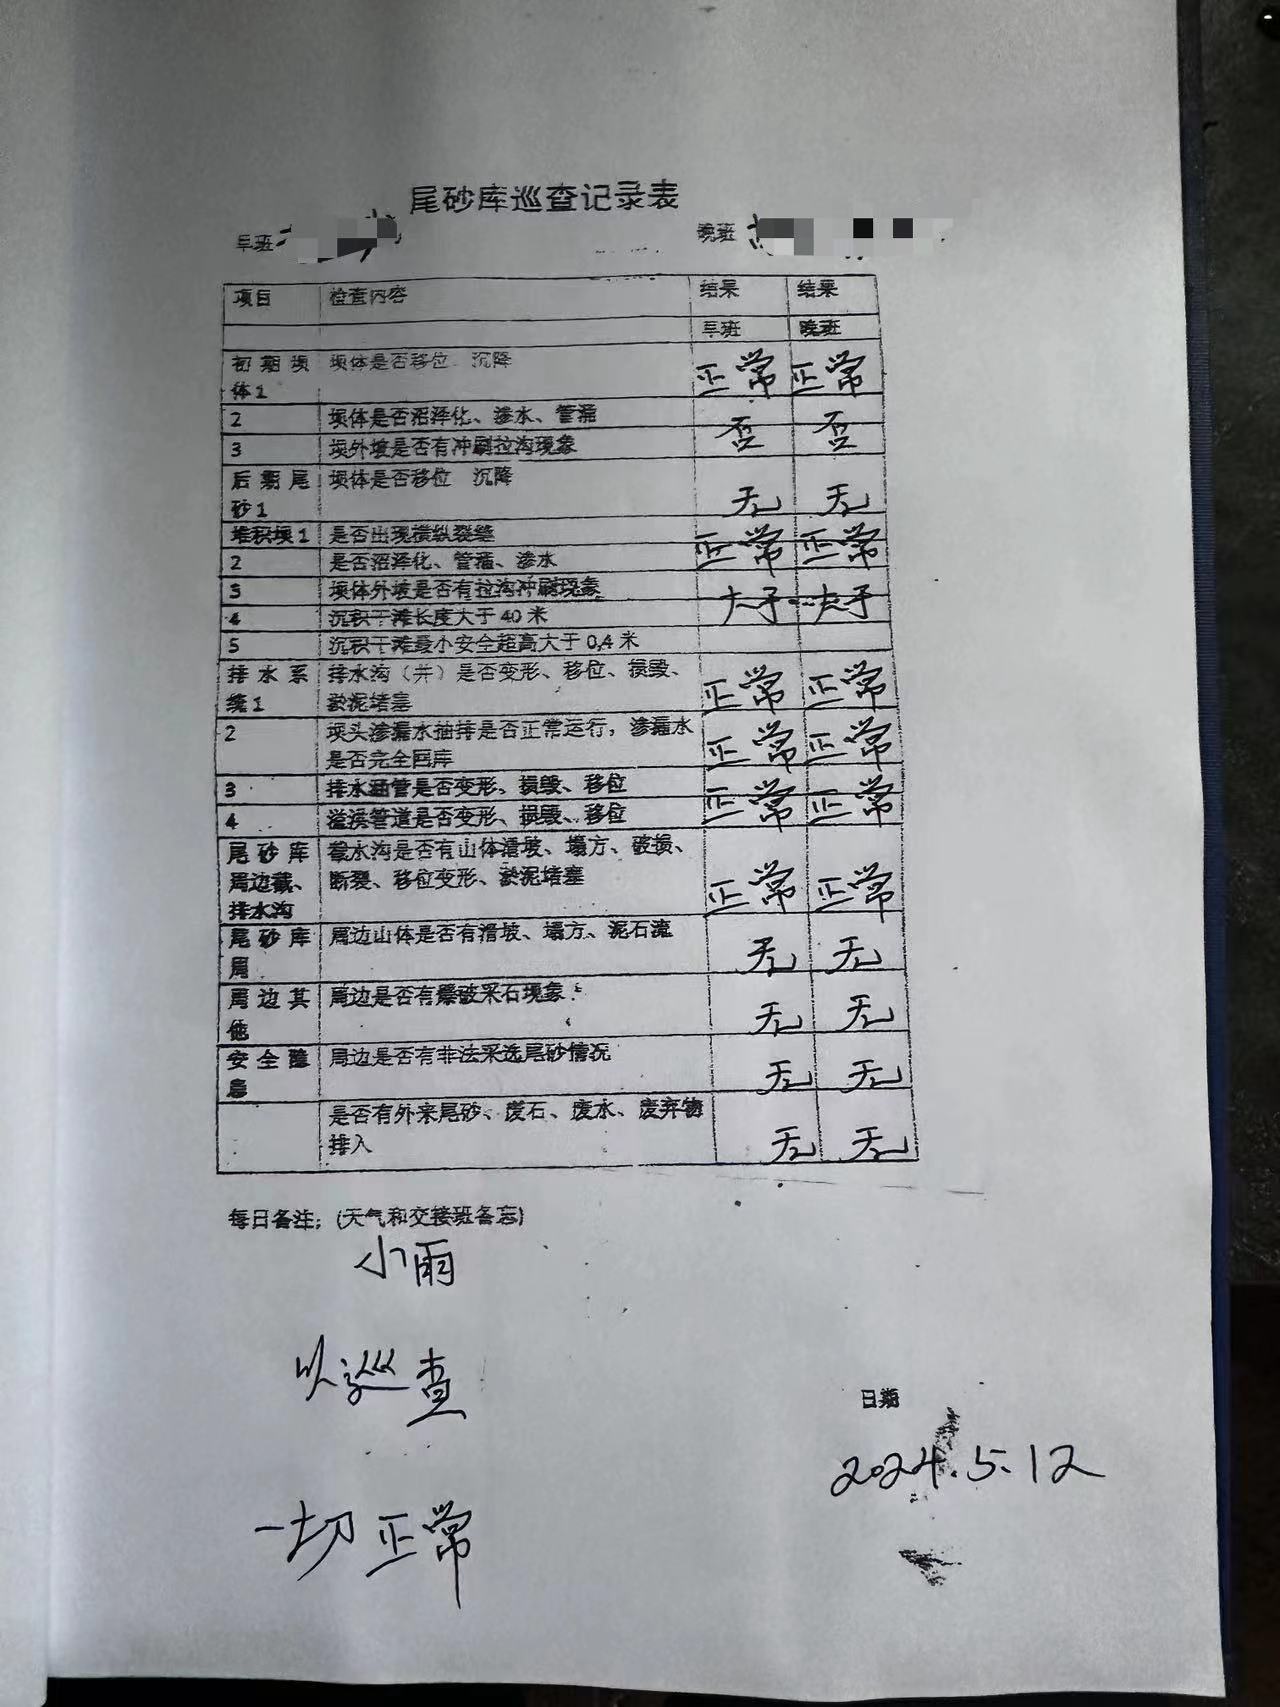 尾砂库巡查记录表
早班 晚班
项目 检查内容 结果 结果
早班 晚班
初期坝体1 坝体是否移位 沉降 正常 正常
2 坝体是否沼泽化、渗水、管涌
3 坝外坡是否有冲刷拉沟现象 否 否
后期尾砂1 坝体是否移位 沉降 无 无
堆积坝1 是否出现横纵裂缝 正常 正常
2 是否沼泽化、管涌、渗水
3 坝体外坡是否有拉沟冲刷现象 大于 大于
4 沉积干滩长度大于40米
5 沉积干滩最小安全超高大于0.4米
排水系统1 排水沟（井）是否变形、移位、损毁、
淤泥堵塞 正常 正常
2 坝头渗漏水抽排是否正常运行，渗漏水
是否完全回库 正常 正常
3 排水涵管是否变形、损毁、移位 正常 正常
4 溢洪管道是否变形、损毁、移位
尾砂库周边截、排水沟 截水沟是否有山体滑坡、塌方、破损、
断裂、移位变形、淤泥堵塞 正常 正常
尾砂库周 周边山体是否有滑坡、塌方、泥石流 无 无
周边其他 周边是否有爆破采石现象 无 无
安全隐患 周边是否有非法采选尾砂情况 无 无
是否有外来尾砂、废石、废水、废弃物
排入 无 无
每日备注；(天气和交接班备忘)
小雨
以巡查
一切正常
日期
2024.5.12